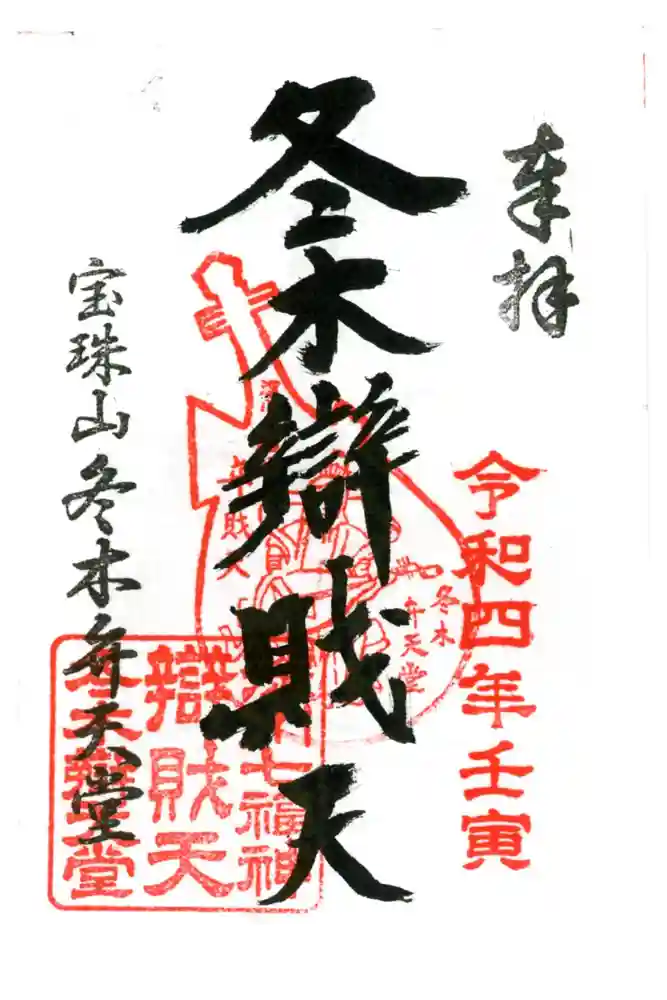 奉拝
令和四年壬寅
冬木辯財天
宝珠山冬木弁天堂
冬木
弁天堂
七福神
辯財天
冬木辯天堂